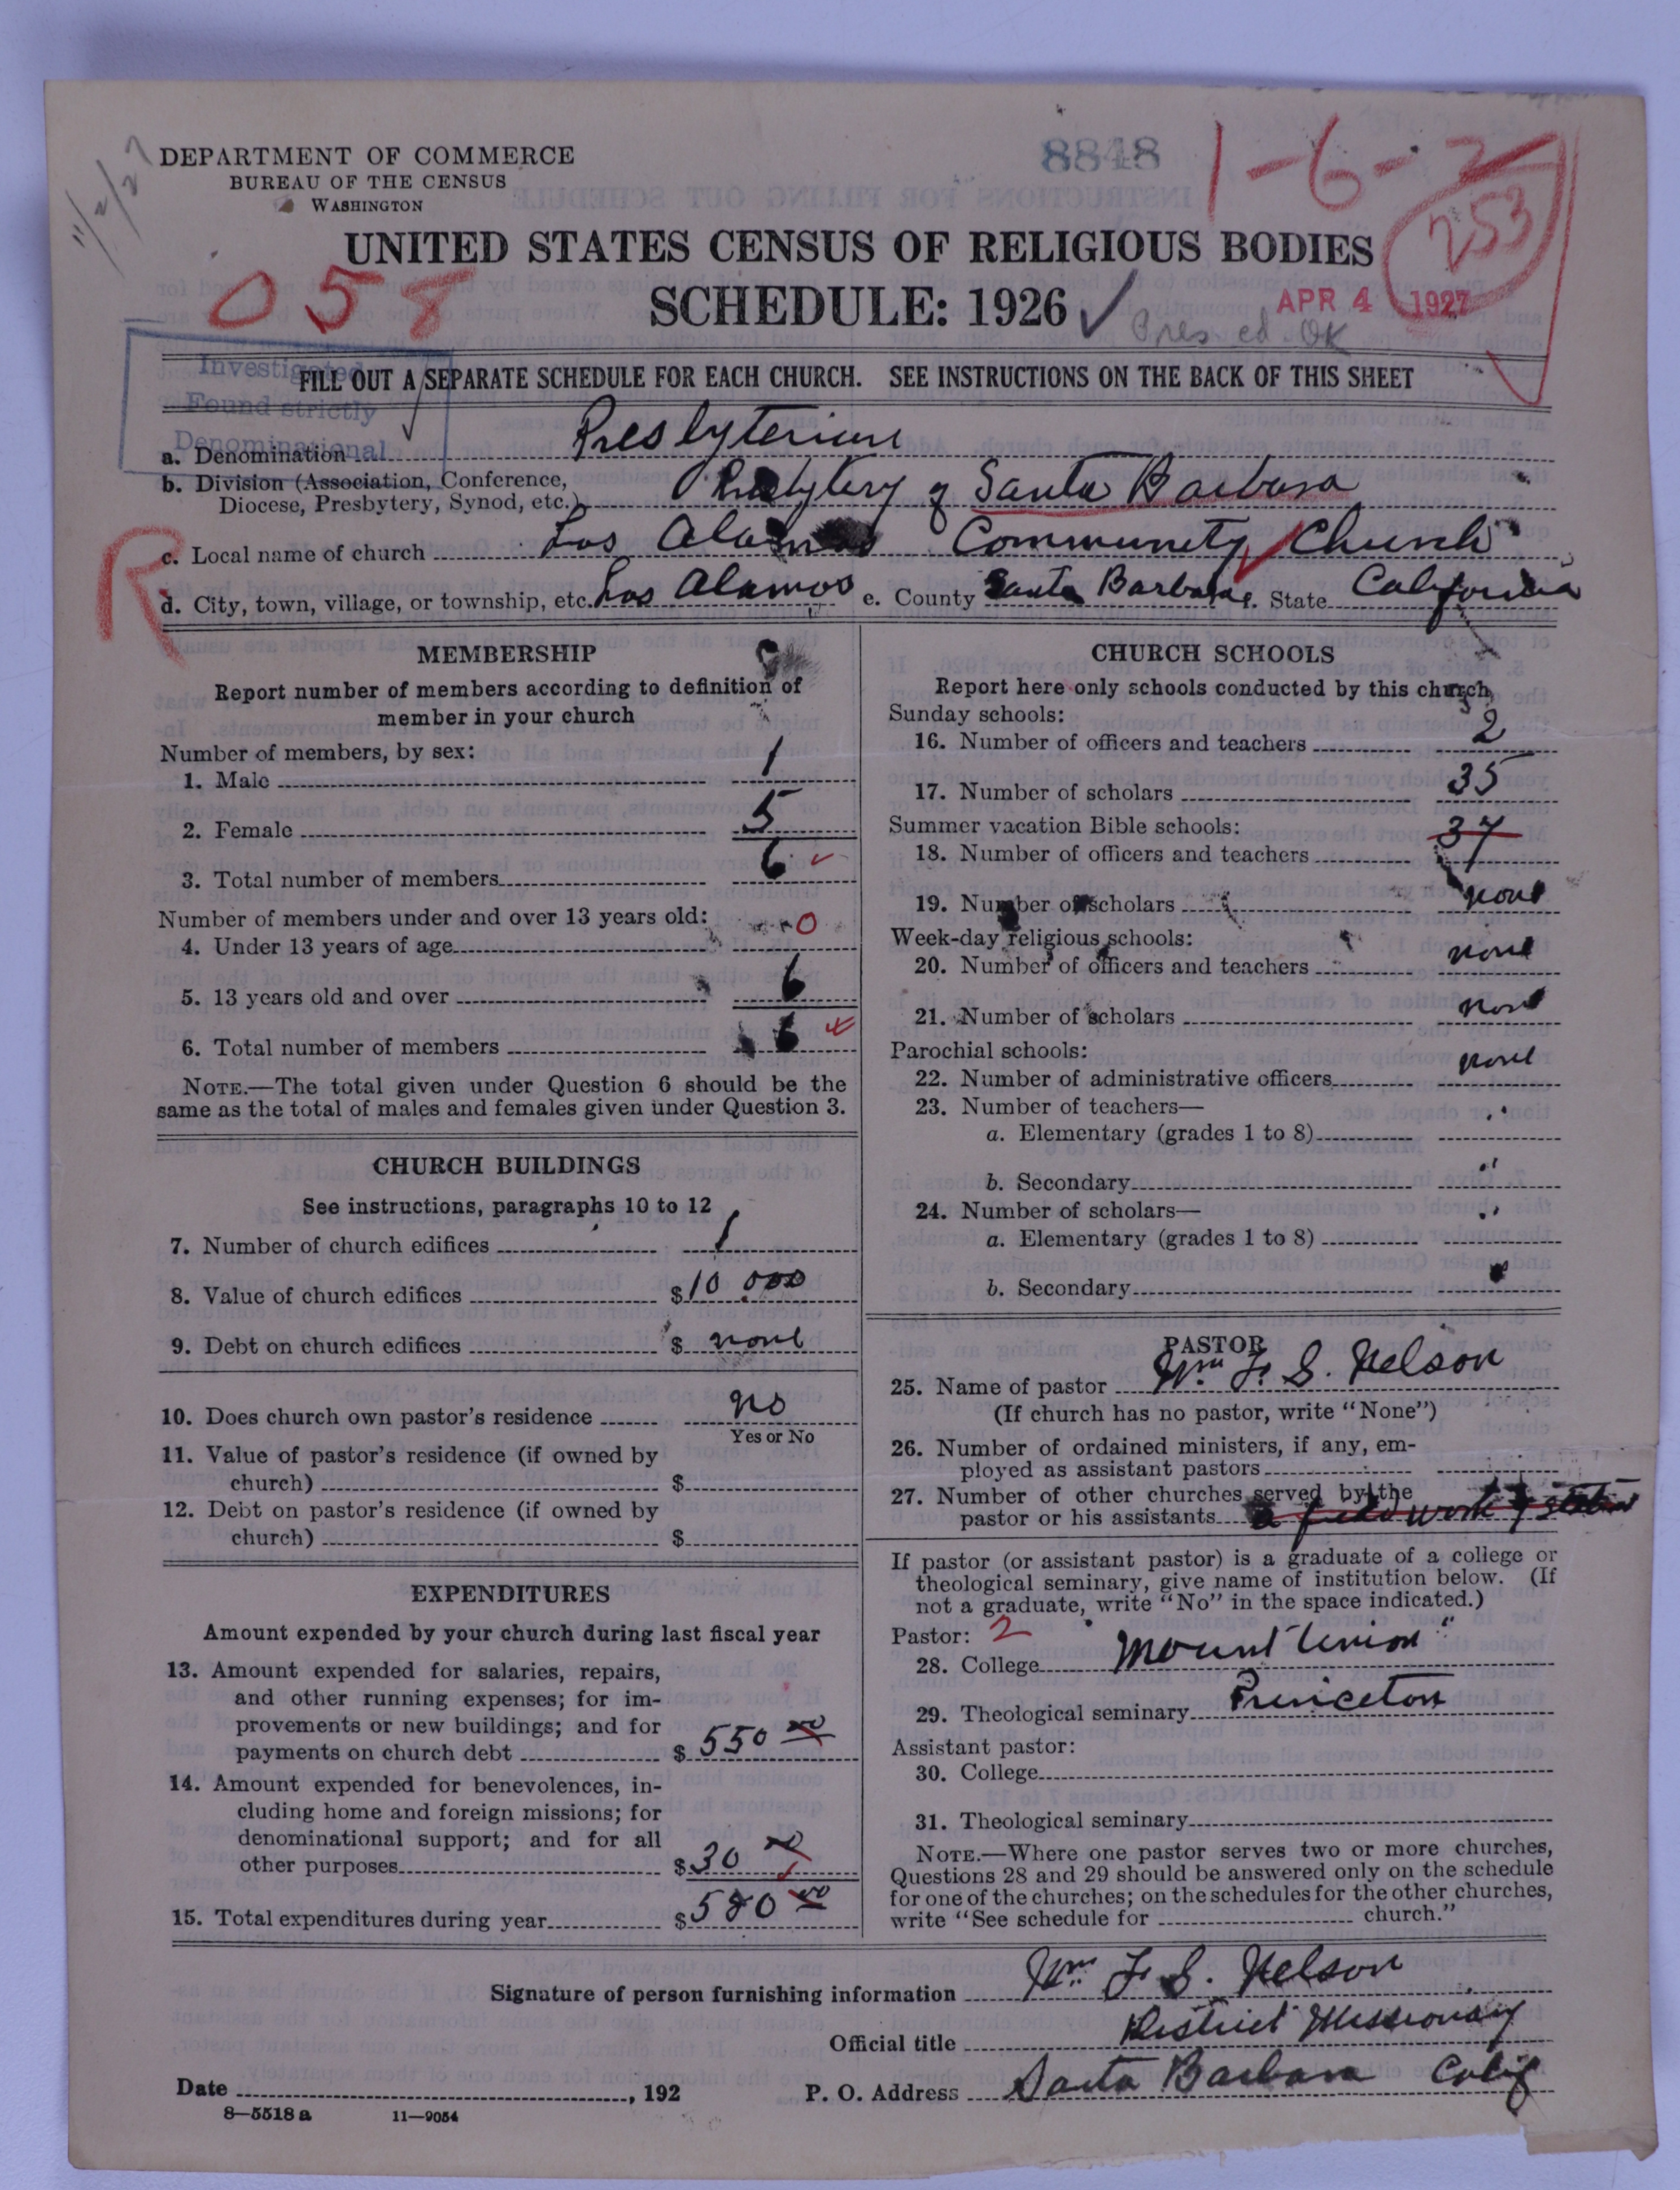 11/2/27
DEPARTMENT OF COMMERCE
BUREAU OF THE CENSUS
WASHINGTON
8848
1-6-2
253
UNITED STATES CENSUS OF RELIGIOUS BODIES
058
SCHEDULE: 1926
APR 4 1927
Pres ed OK
Investigated
Found strictly
Denominational
FILL OUT A SEPARATE SCHEDULE FOR EACH CHURCH. SEE INSTRUCTIONS ON THE BACK OF THIS SHEET
a. Denomination Presbyterian
b. Division (Association, Conference, Diocese, Presbytery, Synod, etc.) Presbytery of Santa Barbara
R
c. Local name of church Los Alamos Community Church
d. City, town, village, or township, etc. Los Alamos e. County Santa Barbara f. State California
MEMBERSHIP
Report number of members according to definition of
member in your church
Number of members, by sex:
1. Male 1
2. Female 5
3. Total number of members 6
Number of members under and over 13 years old:
4. Under 13 years of age 0
5. 13 years old and over 6
6. Total number of members 6
NOTE.—The total given under Question 6 should be the
same as the total of males and females given under Question 3.
CHURCH BUILDINGS
See instructions, paragraphs 10 to 12
7. Number of church edifices 1
8. Value of church edifices $10 000
9. Debt on church edifices $ none
10. Does church own pastor's residence no
Yes or No
11. Value of pastor's residence (if owned by
church) $
12. Debt on pastor's residence (if owned by
church) $
EXPENDITURES
Amount expended by your church during last fiscal year
13. Amount expended for salaries, repairs,
and other running expenses; for im-
provements or new buildings; and for
payments on church debt $ 550 00
14. Amount expended for benevolences, in-
cluding home and foreign missions; for
denominational support; and for all
other purposes $ 30 00
15. Total expenditures during year $ 580 00
CHURCH SCHOOLS
Report here only schools conducted by this church
Sunday schools:
16. Number of officers and teachers 2
17. Number of scholars 35
Summer vacation Bible schools:
37
18. Number of officers and teachers
19. Number of scholars none
Week-day religious schools:
20. Number of officers and teachers none
21. Number of scholars none
Parochial schools:
22. Number of administrative officers none
23. Number of teachers—
a. Elementary (grades 1 to 8) "
b. Secondary "
24. Number of scholars—
a. Elementary (grades 1 to 8) "
b. Secondary
PASTOR
25. Name of pastor Wm F. S. Nelson
(If church has no pastor, write "None")
26. Number of ordained ministers, if any, em-
ployed as assistant pastors
27. Number of other churches served by the
pastor or his assistants a field work
If pastor (or assistant pastor) is a graduate of a college or
theological seminary, give name of institution below. (If
not a graduate, write "No" in the space indicated.)
Pastor: 2
28. College Mount Union
29. Theological seminary Princeton
Assistant pastor:
30. College
31. Theological seminary
NOTE.—Where one pastor serves two or more churches,
Questions 28 and 29 should be answered only on the schedule
for one of the churches; on the schedules for the other churches,
write "See schedule for church."
Signature of person furnishing information Wm F. S. Nelson
Official title District Missionary
Date , 192 P. O. Address Santa Barbara Calif
8—5518 a 11—9054